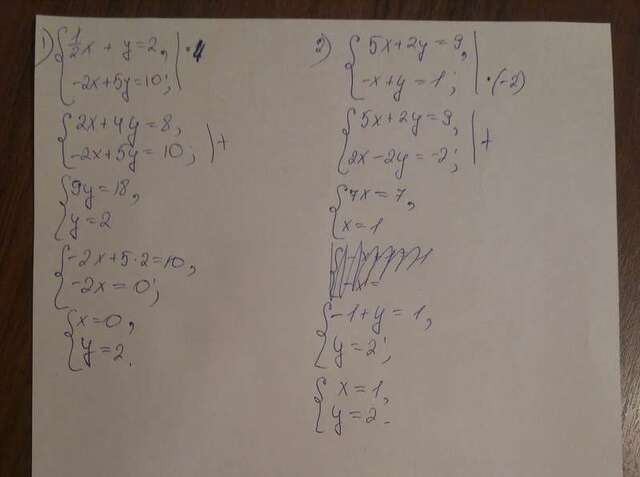 1) { 1/2x + y = 2, | · 4
-2x + 5y = 10;
{ 2x + 4y = 8, | +
-2x + 5y = 10;
{ 9y = 18,
y = 2
{ -2x + 5 · 2 = 10,
-2x = 0;
{ x = 0,
y = 2.
2) { 5x + 2y = 9,
-x + y = 1; | · (-2)
{ 5x + 2y = 9, | +
2x - 2y = -2;
{ 7x = 7,
x = 1
{ -1 + y = 1,
y = 2;
{ x = 1,
y = 2.